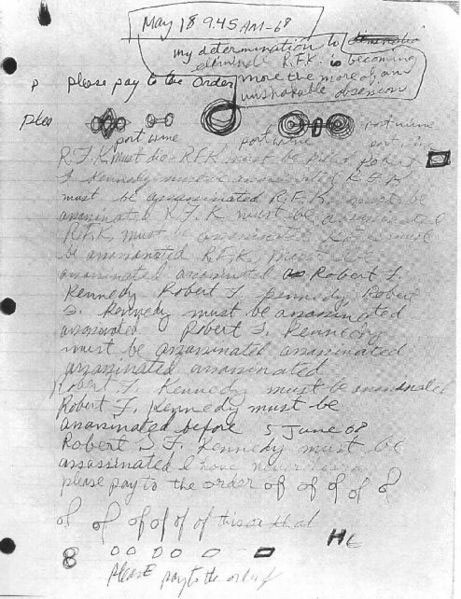 May 18 9.45 AM-68
my determination to
eliminate R.F.K. is becoming
more the more of an
unshakable obsession
p please pay to the Order
pleo
port wine port wine port wine
R.F.K. must die - R.F.K. must be
must be assassinated R.F.K. must be
assassinated R.F.K. must be assassinated
R.F.K. must be assassinated
be assassinated R.F.K. must be
assassinated assassinated Robert F.
Kennedy Robert F. Kennedy Robert
F. Kennedy must be assassinated
assassinated Robert F. Kennedy
must be assassinated assassinated
assassinated assassinated
Robert F. Kennedy must be assassinated
Robert F. Kennedy must be
assassinated before 5 June 68
Robert F. Kennedy must be
assassinated I have never heard
please pay to the order of of of of of
of of of of of of this or that
8 0 0 0 0 0
please pay to the order of